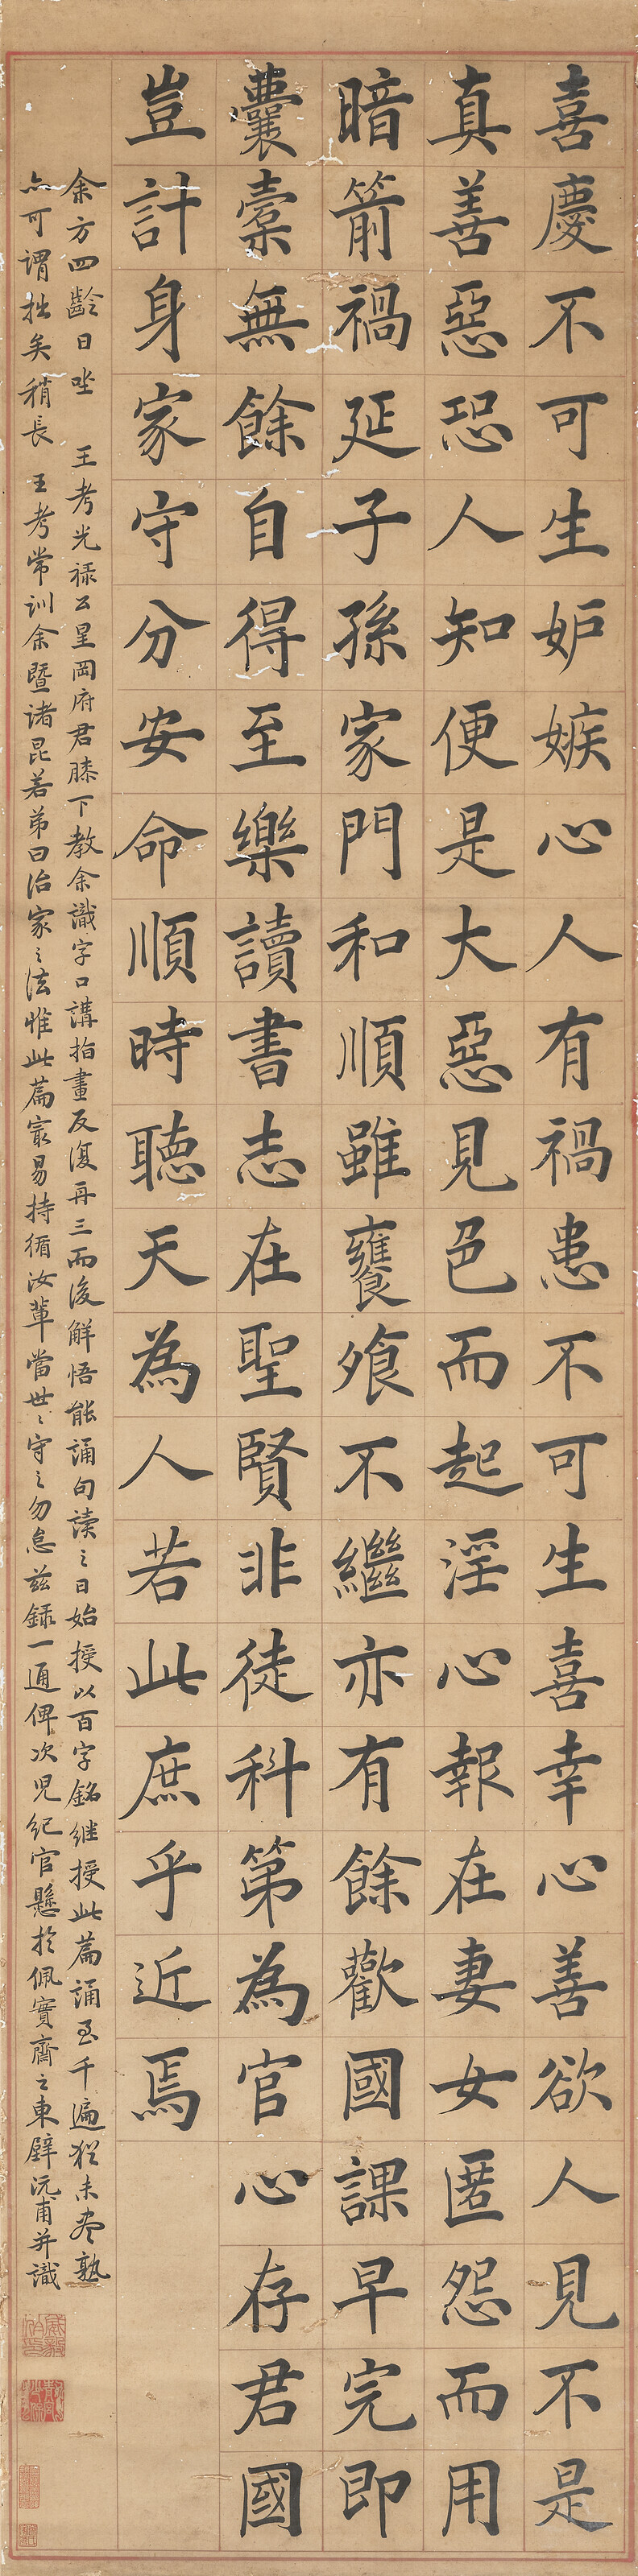 喜慶不可生妒嫉心人有禍患不可生喜幸心善欲人見不是
真善惡恐人知便是大惡見色而起淫心報在妻女匿怨而用
暗箭禍延子孫家門和順雖饔飧不繼亦有餘歡國課早完即
囊橐無餘自得至樂讀書志在聖賢非徒科第為官心存君國
豈計身家守分安命順時聽天為人若此庶乎近焉
余方四齡日坐 王考光祿公星岡府君膝下教余識字口講指畫反復再三而後解悟能誦句讀之日始授以百字銘繼授此篇誦至千遍猶未盡熟
亦可謂拙矣稍長 王考常訓余暨諸昆若弟曰治家之法惟此篇最易持循汝輩當世世守之勿怠茲錄一通俾次兒紀官懸於佩實齋之東壁沅甫并識